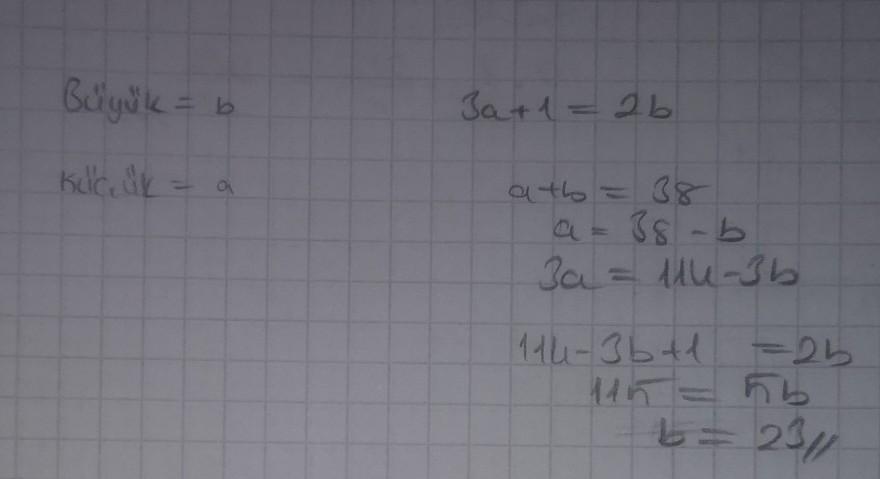 Büyük = b
3a+1 = 2b
Küçük = a
a+b = 38
a = 38 - b
3a = 114-3b
114-3b+1 = 2b
115 = 5b
b = 23//